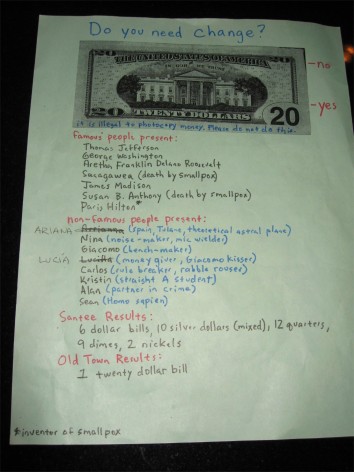 Do you need change?
THE UNITED STATES OF AMERICA
IN GOD WE TRUST
-no
20 TWENTY DOLLARS 20
-yes
it is illegal to photocopy money. Please do not do this.
Famous people present:
Thomas Jefferson
George Washington
Aretha Franklin Delano Roosevelt
Sacagawea (death by smallpox)
James Madison
Susan B. Anthony (death by smallpox)
Paris Hilton*
non-famous people present:
ARIANA Arrianna (Spain, Tulane, theoretical astral plane)
Nina (noise-maker, mic wielder)
Giacomo (bench-maker)
LUCÍA Lucilla (money giver, Giacomo kisser)
Carlos (rule breaker, rabble rouser)
Kristin (straight A student)
Alan (partner in crime)
Sean (Homo sapien)
Santee Results:
6 dollar bills, 10 silver dollars (mixed), 12 quarters,
9 dimes, 2 nickels
Old Town Results:
1 twenty dollar bill
*inventor of smallpox